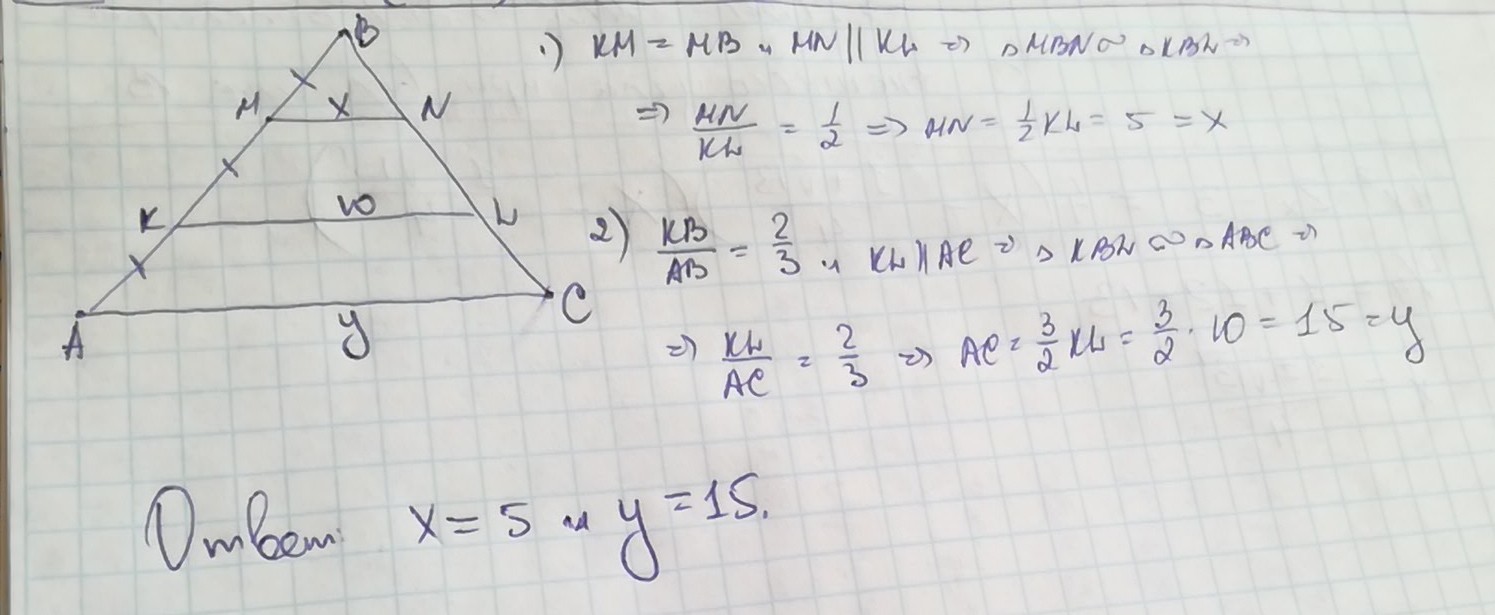 B
M x N
K 10 L
A y C
1) KM = MB и MN || KL ⇒ △MBN ∾ △KBL ⇒
⇒ MN/KL = 1/2 ⇒ MN = 1/2 KL = 5 = x
2) KB/AB = 2/3 и KL || AC ⇒ △KBL ∾ △ABC ⇒
⇒ KL/AC = 2/3 ⇒ AC = 3/2 KL = 3/2 · 10 = 15 = y
Ответ: x = 5 и y = 15.